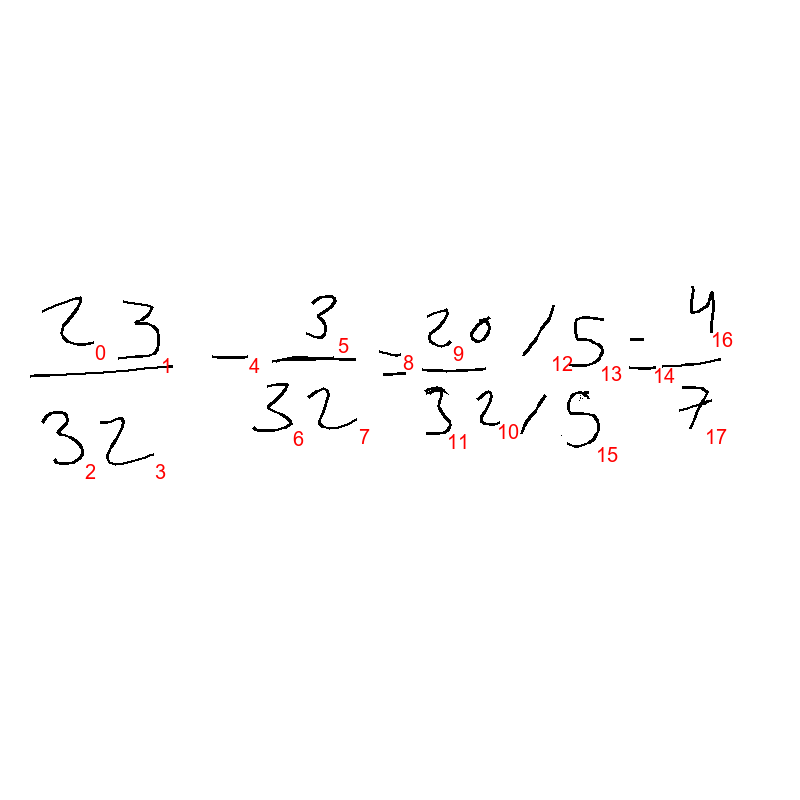 23/32 - 3/32 = 20/32 / 5/5 = 4/7
0 1 2 3 4 5 6 7 8 9 10 11 12 13 14 15 16 17